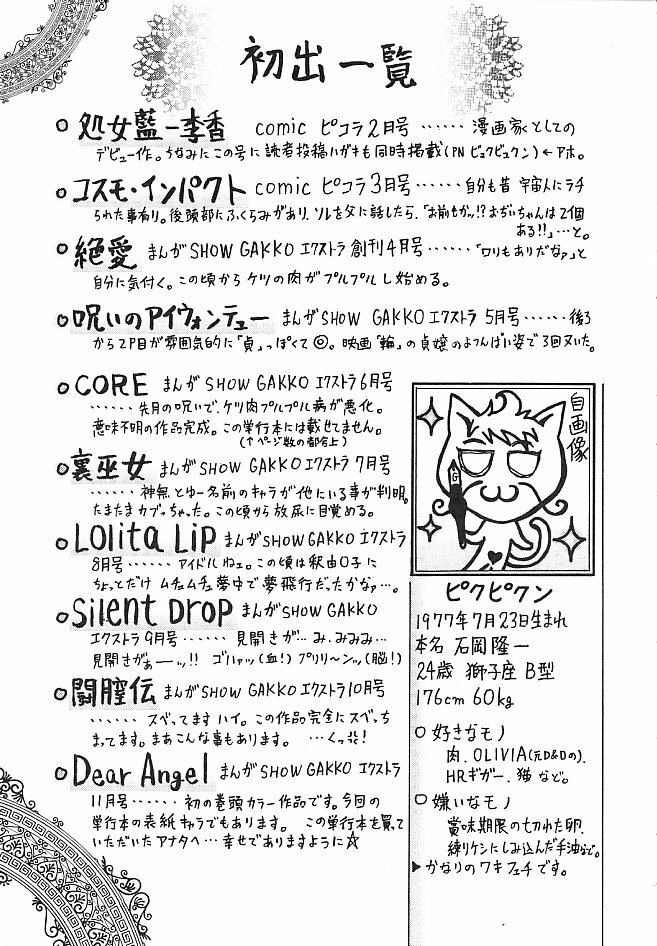 初出一覧
○ 処女藍-李香 comic ピコラ2月号 ・・・・・・ 漫画家としての
デビュー作。ちなみにこの号に読者投稿ハガキも同時掲載(PN ピュクピュクン)←アホ。
○ コスモ・インパクト comic ピコラ3月号 ・・・・・・自分も昔 宇宙人にラチ
られた事有り。後頭部にふくらみがあり、ソレを父に話したら、「お前もかッ!?おぢいちゃんは2個
ある!!」…と。
○ 絶愛 まんがSHOW GAKKO エクストラ 創刊4月号・・・・・・「ロリもありだなァ」と
自分に気付く。この頃からケツの肉がプルプルし始める。
○ 呪いのアイウォンチュー まんがSHOW GAKKO エクストラ 5月号・・・・・・後ろ
から2P目が雰囲気的に「貞」っぽくて◎。映画「輪」の貞嬢のよつんばい姿で3回ヌいた。
○ CORE まんが SHOW GAKKO エクストラ6月号
・・・・・・先月の呪いで、ケツ肉プルプル病が悪化。
意味不明の作品完成。この単行本には載せてません。
(↑ページ数の都合上)
○ 裏巫女 まんがSHOW GAKKO エクストラ 7月号
・・・・・・神無とゆー名前のキャラが他にいる事が判明。
たまたまカブっちゃった。この頃から放尿に目覚める。
○ Lolita Lip まんがSHOW GAKKO エクストラ
8月号・・・・・・アイドルねェ。この頃は釈由○子に
ちょっとだけ ムチュムチュ夢中で夢飛行だったかなァ…。
○ Silent Drop まんがSHOW GAKKO
エクストラ9月号・・・・・・見開きが…み、みみみ…
見開きがぁーッ!! ゴハァッ(血!)プリリ〜ンッ(脳!)
○ 闘膣伝 まんがSHOW GAKKO エクストラ10月号
・・・・・・スベってます ハイ。この作品完全にスベっち
まってます。まあこんな事もあります。 …くっ!
○ Dear Angel まんがSHOW GAKKO エクストラ
11月号・・・・・・初の巻頭カラー作品です。今回の
単行本の表紙キャラでもあります。 この単行本を買って
いただいたアナタへ…幸せでありますように☆
自画像
G
ピクピクン
1977年7月23日生まれ
本名 石岡隆一
24歳 獅子座 B型
176cm 60kg
○ 好きなモノ
肉、OLIVIA(元D&Dの)、
HRギガー、猫 など。
○ 嫌いなモノ
賞味期限の切れた卵、
練りケシにしみ込んだ手油など。
▶かなりのワキフェチです。